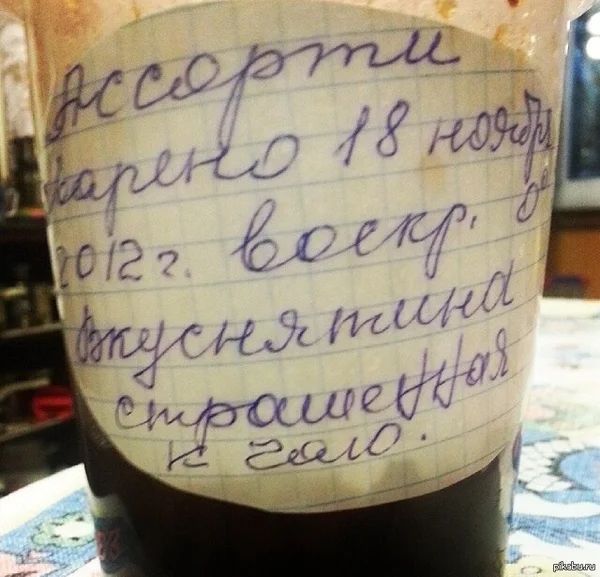 Ассорти
варено 18 ноября
2012 г. воскр. 0°
Вкуснятина
страшенная
к чаю.
pikabu.ru